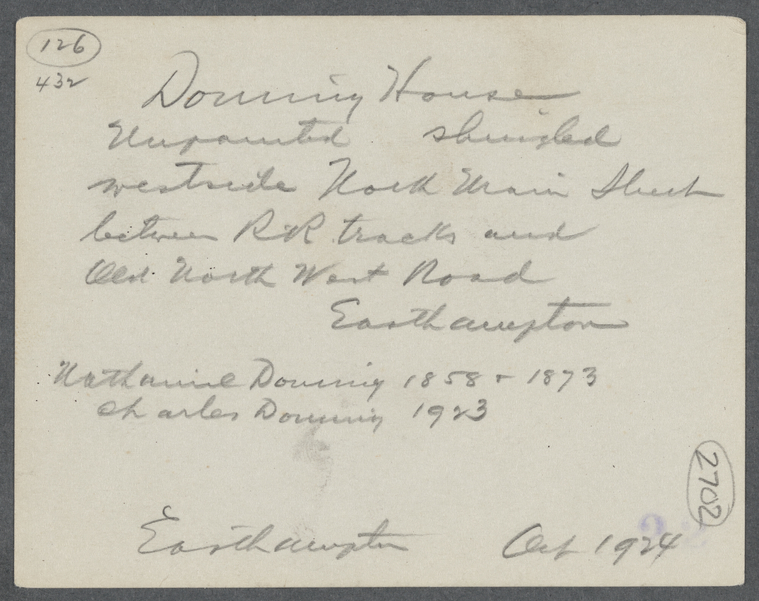 126
432
Dominy House
Unpainted shingled
westside North Main Street
between RR tracks and
Old North West Road
Easthampton
Nathaniel Dominy 1858 + 1873
Charles Dominy 1923
2702
Easthampton Oct 1924